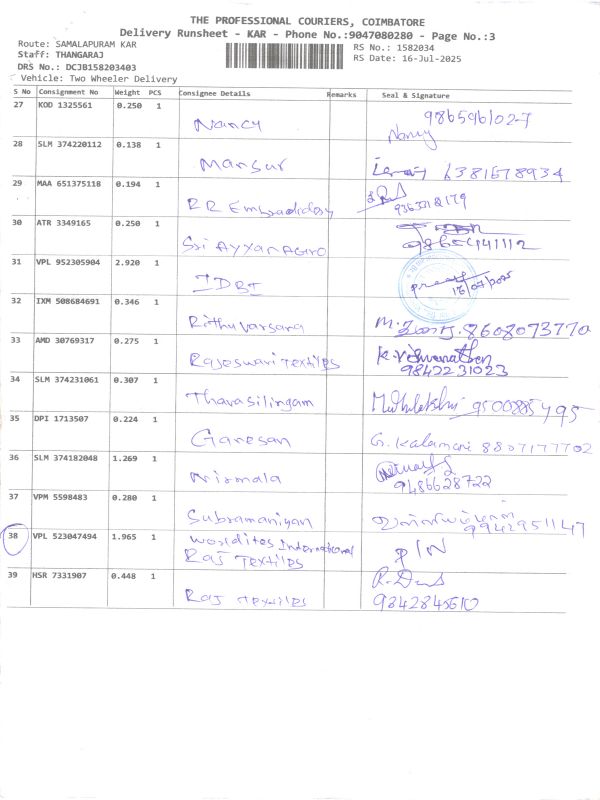 THE PROFESSIONAL COURIERS, COIMBATORE
Delivery Runsheet - KAR - Phone No.:9047080280 - Page No.:3
Route: SAMALAPURAM KAR
RS No.: 1582034
Staff: THANGARAJ
RS Date: 16-Jul-2025
DRS No.: DCJB158203403
Vehicle: Two Wheeler Delivery
S No Consignment No Weight PCS Consignee Details Remarks Seal & Signature
27 KOD 1325561 0.250 1
Nancy
9865961027
Nancy
28 SLM 374220112 0.138 1
Mansur
6381678934
29 MAA 651375118 0.194 1
RR Embroidery
30 ATR 3349165 0.250 1
Sri Ayyan Agro
31 VPL 952305904 2.920 1
IDBI
16/07/2025
32 IXM 508684691 0.346 1
Rithu Varsara
8608073770
33 AMD 30769317 0.275 1
Rajeswari Textiles
K. Vishwanathan
9842231023
34 SLM 374231061 0.307 1
Tharasilingam
9500885495
35 DPI 1713507 0.224 1
Ganesan
G. Kalamani 8807177702
36 SLM 374182048 1.269 1
Nirmala
9486628722
37 VPM 5598483 0.280 1
Subramaniyan
9942951147
38 VPL 523047494 1.965 1
Worldites International
Raj Textiles
P/N
39 HSR 7331907 0.448 1
Raj textiles
9842845610